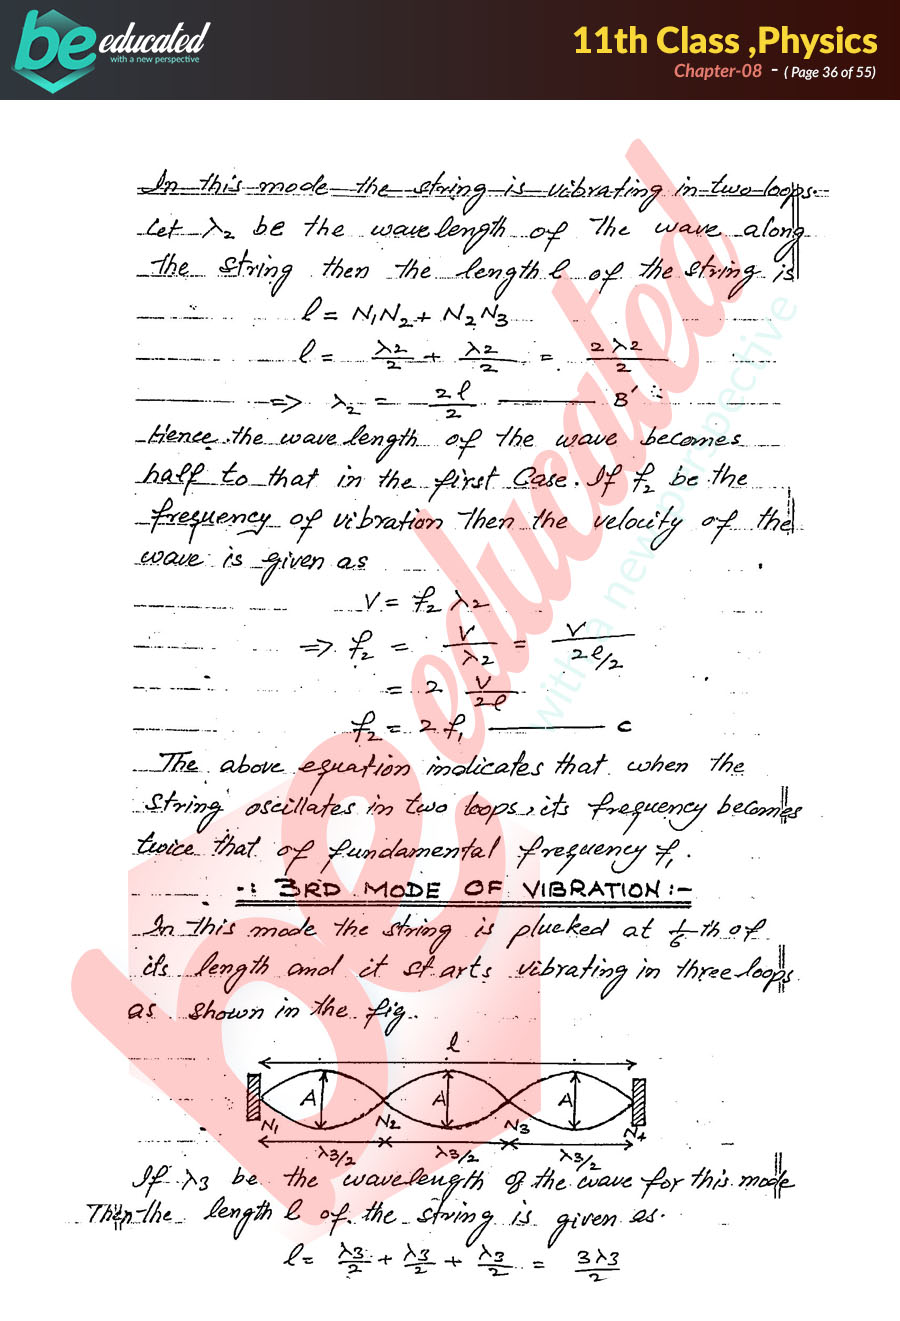 be educated
with a new perspective
11th Class ,Physics
Chapter-08 - ( Page 36 of 55)
In this mode the string is vibrating in two loops.
Let λ2 be the wavelength of the wave along
the string then the length l of the string is
l = N1N2 + N2N3
l = λ2/2 + λ2/2 = 2λ2/2
=> λ2 = 2l/2 ——— B'
Hence the wavelength of the wave becomes
half to that in the first Case. If f2 be the
frequency of vibration Then the velocity of the
wave is given as
V = f2 λ2
=> f2 = V/λ2 = V/2l/2
= 2 V/2l
f2 = 2 f1 ——— C
The above equation indicates that when the
string oscillates in two loops, its frequency becomes
twice that of fundamental frequency f1.
-: 3RD MODE OF VIBRATION:-
In this mode the string is plucked at 1/6 th of
its length and it starts vibrating in three loops
as shown in the fig.
l
A A A
N1 N2 N3 N4
λ3/2 λ3/2 λ3/2
If λ3 be the wavelength of the wave for this mode
Then the length l of the string is given as.
l = λ3/2 + λ3/2 + λ3/2 = 3λ3/2
be educated
with a new perspective